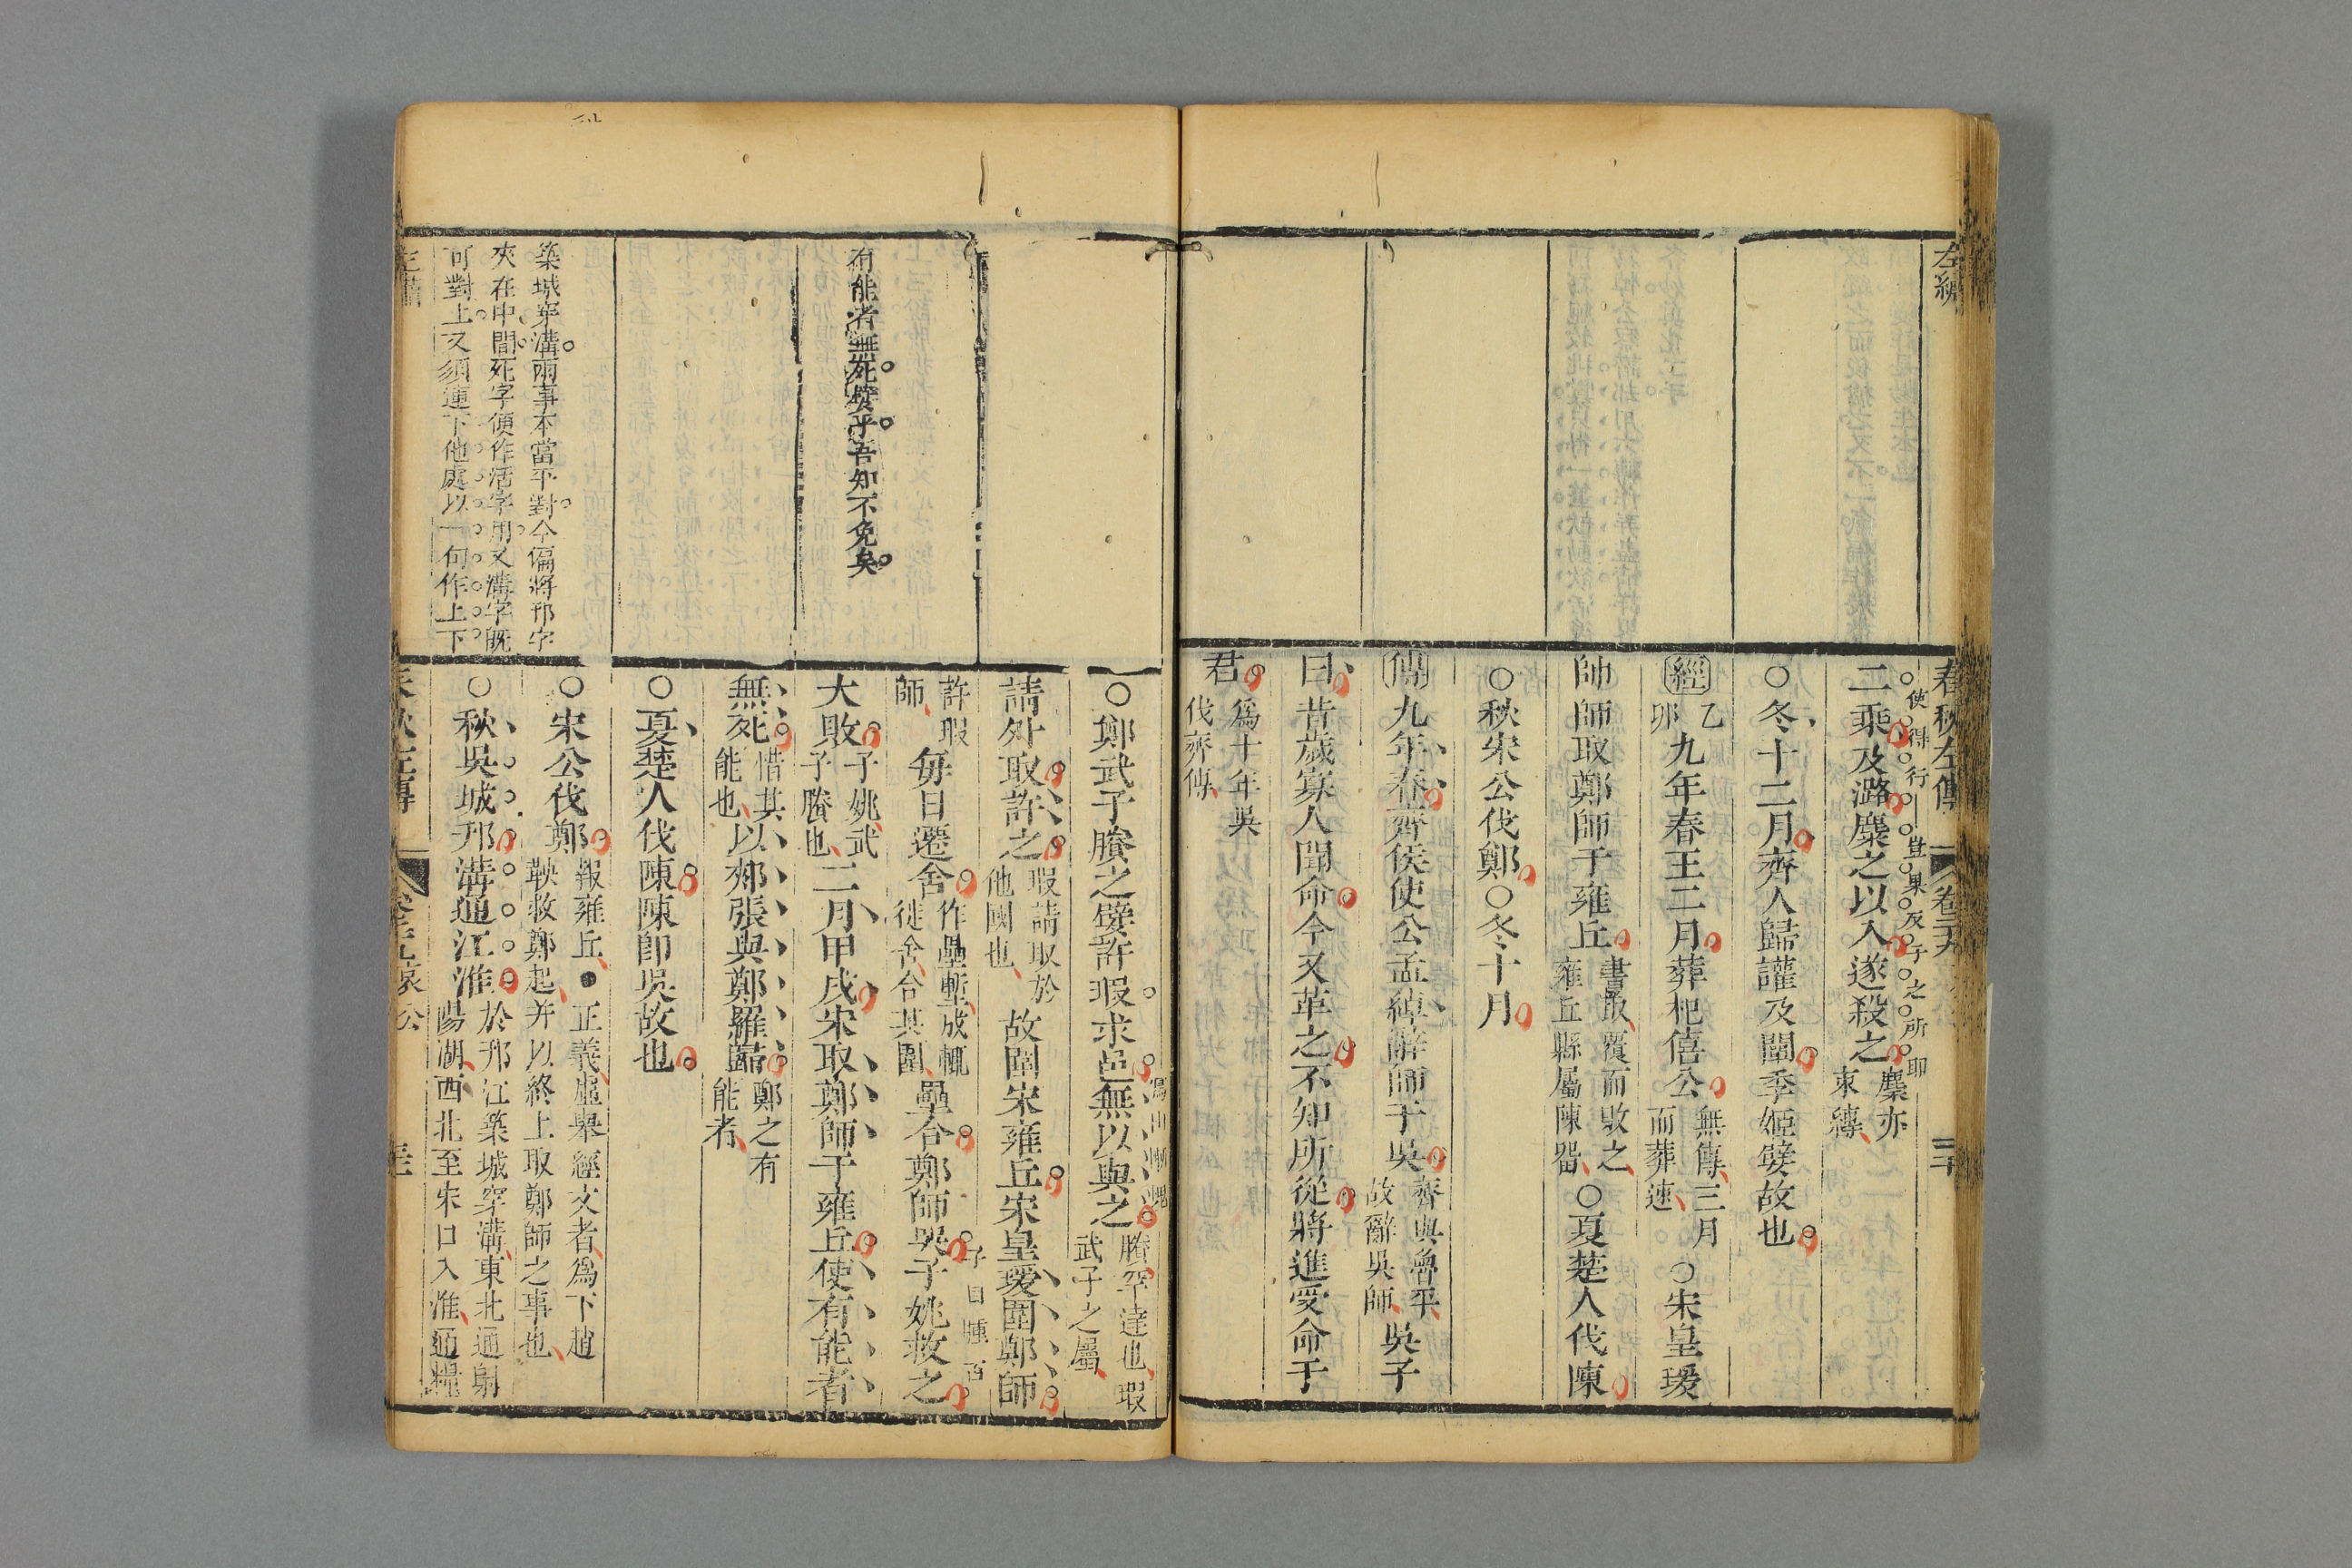 左繡
春秋左傳
卷二十九
使得行一豈果反子之所
二乘及潞麇之以入遂殺之
麇亦
束縛
○冬十二月齊人歸讙及闡季姬嬖故也
經
乙
卯
九年春王二月葬杞僖公
無傳三月
而葬速
○宋皇瑗
帥師取鄭師于雍丘
書取覆而敗之
雍丘縣屬陳留
○夏楚人伐陳
○秋宋公伐鄭○冬十月
傳九年春齊侯使公孟綽辭師于吳
齊與魯平
故辭吳師
吳子
曰昔歲寡人聞命今又革之不知所從將進受命于
君
爲十年吳
伐齊傳
有能者無死嬖乎吾知不免矣
築城穿溝兩事本當平對今偏將邗字
夾在中間死字便作活字用又溝字既
可對上又須連下他處以一句作上下
○鄭武子賸之嬖許瑕求邑無以與之
賸罕達也瑕
武子之屬
請外取許之
瑕請取於
他國也
故圍宋雍丘宋皇瑗圍鄭師
許瑕
師
每日遷舍
作壘塹成輒
徙舍合其圍
壘合鄭師哭子姚救之
大敗
子姚武
子賸也
二月甲戌宋取鄭師于雍丘使有能者
無死
惜其
能也
以郟張與鄭羅歸
鄭之有
能者
○夏楚人伐陳陳卽吳故也
○宋公伐鄭
報雍丘●正義虛舉經文者爲下趙
鞅救鄭起并以終上取鄭師之事也
○秋吳城邗溝通江淮
於邗江築城穿溝東北通射
陽湖西北至宋口入淮通糧
左繡
春秋左傳
哀公